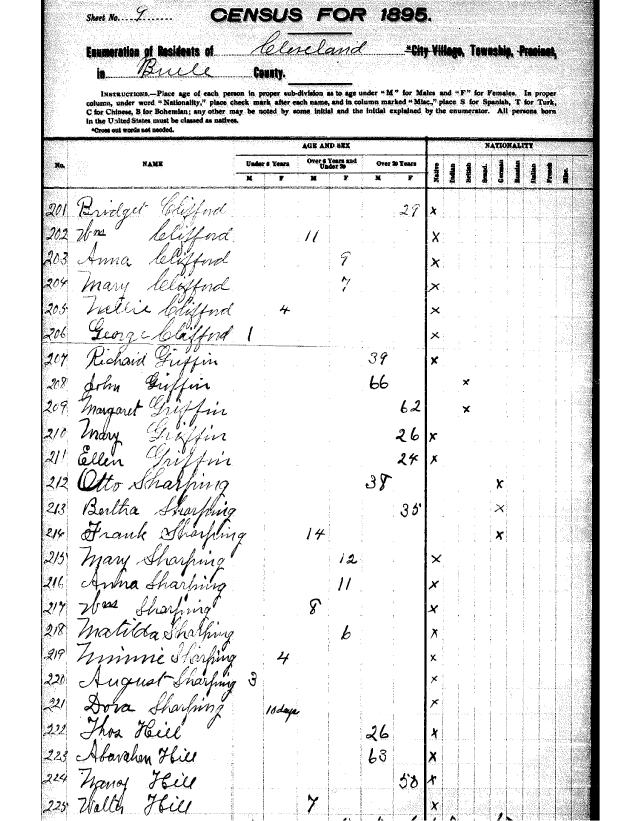 Sheet No. 9
CENSUS FOR 1895.
Enumeration of Residents of Cleveland *City Village, Township, Precinct,
in Brule County.
INSTRUCTIONS.—Place age of each person in proper sub-division as to age under "M" for Males and "F" for Females. In proper
column, under word "Nationality," place check mark after each name, and in column marked "Misc.," place S for Spanish, T for Turk,
C for Chinese, B for Bohemian; any other may be noted by some initial and the initial explained by the enumerator. All persons born
in the United States must be classed as natives.
*Cross out words not needed.
No. NAME AGE AND SEX NATIONALITY
Under 6 Years Over 6 Years and Under 20 Over 20 Years
M F M F M F Native Indian British Scand. German Russian Italian French Misc.
201 Bridget Clifford 29 x
202 Wm Clifford 11 x
203 Anna Clifford 9 x
204 Mary Clifford 7 x
205 Nellie Clifford 4 x
206 George Clifford 1 x
207 Richard Griffin 39 x
208 John Griffin 66 x
209 Margaret Griffin 62 x
210 Mary Griffin 26 x
211 Ellen Griffin 24 x
212 Otto Sharping 38 x
213 Bertha Sharping 35 x
214 Frank Sharping 14 x
215 Mary Sharping 12 x
216 Anna Sharping 11 x
217 Wm Sharping 8 x
218 Matilda Sharping 6 x
219 Minnie Sharping 4 x
220 August Sharping 3 x
221 Dora Sharping 10 days x
222 Thos Hill 26 x
223 Abavahen Hill 63 x
224 Nancy Hill 58 x
225 Walter Hill 7 x